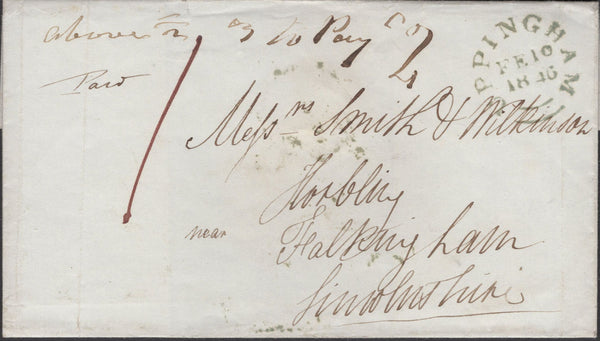 above ½
3 to Pay
4
Paid
1
UPPINGHAM
FE 10
1846
Messrs Smith & Wilkinson
Horbling
near Falkingham
Lincolnshire